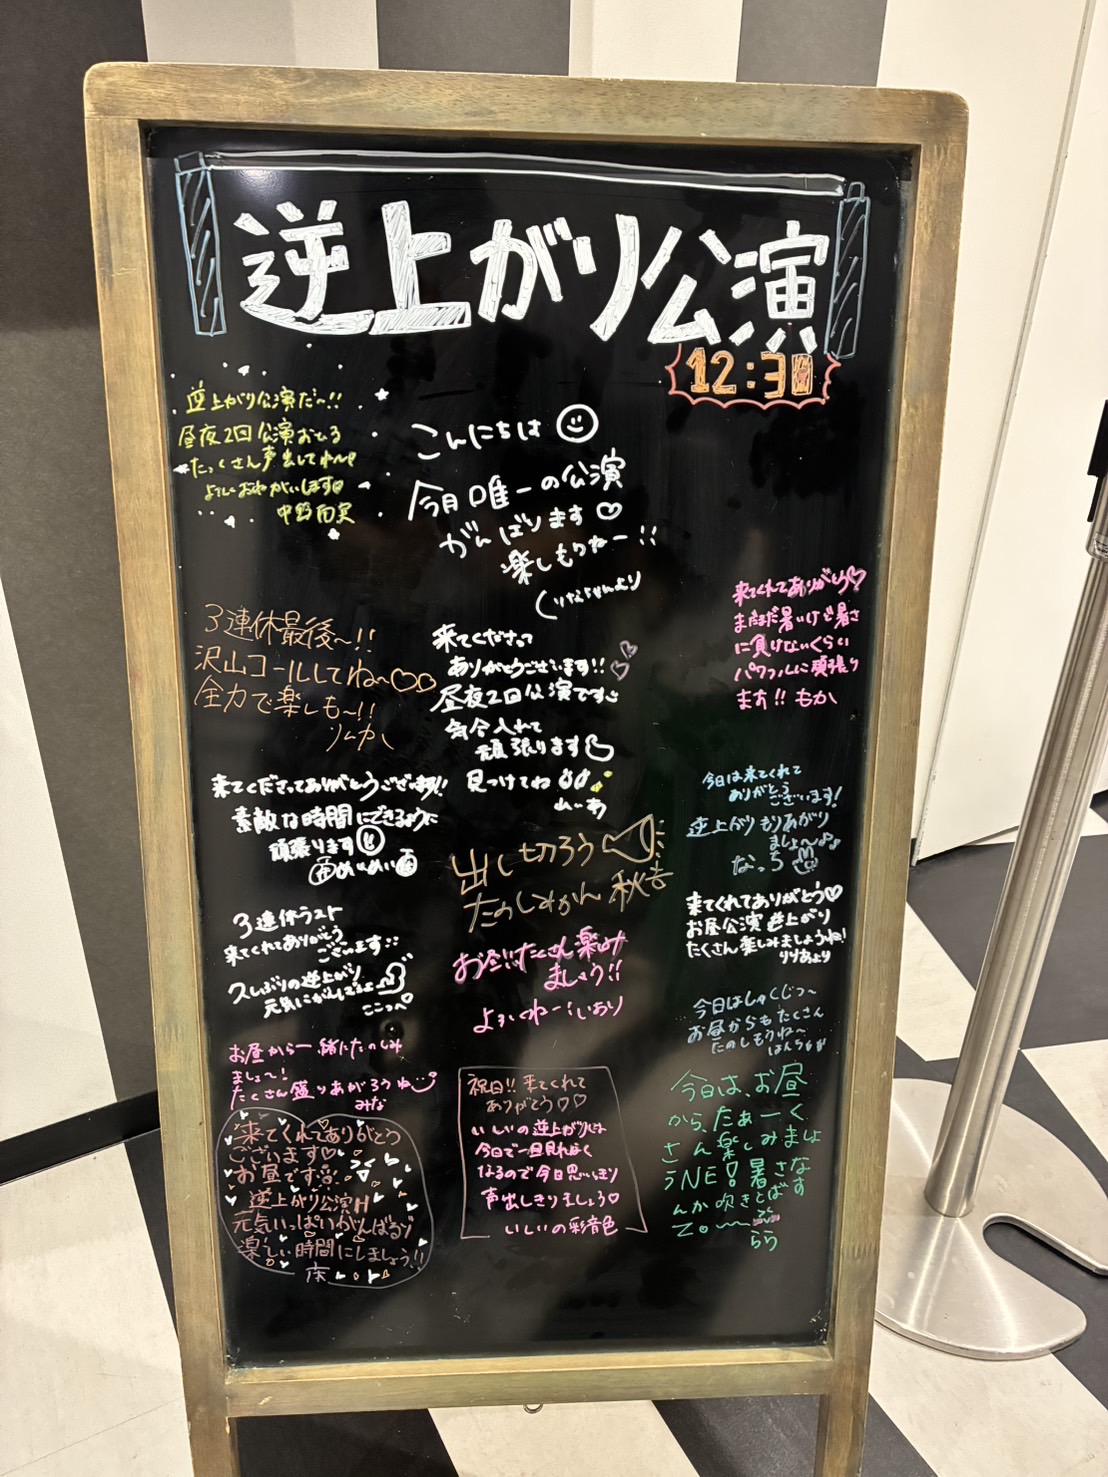 逆上がり公演
12:30
逆上がり公演だ〜!!
昼夜2回公演おひる
たっくさん声出してね〜
よろしくおねがいします
こんにちは
今月唯一の公演
がんばります♡
楽しもうねー!!
3連休最後〜!!
沢山コールしてね〜♡♡
全力で楽しも〜!!
来てくださって
ありがとうございます!!
昼夜2回公演です
気合入れて
頑張ります
見つけてね
来てくれてありがとう♡
まだまだ暑いけど暑さ
に負けないくらい
パワフルに頑張り
ます!! もか
来てくださってありがとうございます!!
素敵な時間にできるように
頑張ります
めいめい
今日は来てくれて
ありがとう
ございます!
逆上がりもりあがり
ましょ〜
なっち
出し切ろう
たのしみかん 秋吉
来てくれてありがとう♡
お昼公演 逆上がり
たくさん楽しみましょうね!
りりあより
3連休ラスト
来てくれてありがとう
ございます!!
久しぶりの逆上がり
元気に
ここっぺ
お昼!!たくさん楽しみ
ましょう!!
よろしくねー! いおり
今日はしゅくじつ〜
お昼からもたくさん
たのしもうね〜
お昼から一緒にたのしみ
ましょ〜!
たくさん盛りあがろうね
みな
来てくれてありがとう
ございます♡
お昼です
逆上がり公演
元気いっぱいがんばるゾ
楽しい時間にしましょう!!
祝日!! 来てくれて
ありがとう♡♡
いしいの逆上がりは
今日で一旦見れなく
なるので今日思いっきり
声出しきりましょう♡
いしいの彩音色
今日は、お昼
から、たぁーく
さん楽しみましょ
うNE! 暑さな
んか吹きとばす
Zo〜
らら